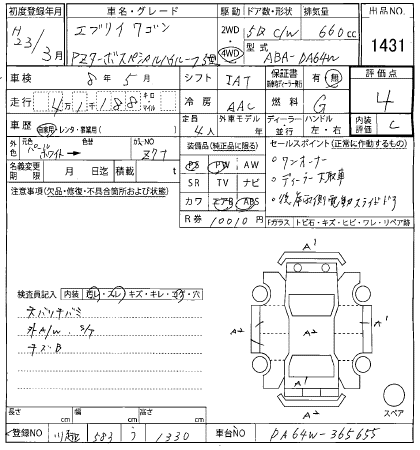 初度登録年月 車名・グレード 駆動 ドア数・形状 排気量 出品NO.
H23/3月 エブリイワゴン 2WD・4WD 5D C/W 660cc 1431
PZターボスペシャルハイルーフ 型式 ABA-DA64W
車検 8年5月 シフト IAT 保証書 有・無 評価点
走行 4万1千188 キロ・マイル 冷房 AAC 燃料 G 4
車歴 自家用・レンタ・事業用( ) 定員 4人 外車モデル 年 ディーラー・並行 ハンドル 左・右 内装評価 C
外色 元色 パールホワイト → 色替 カラーNO Z7T
装備品(純正品に限る) セールスポイント(正常に作動するもの)
名義変更期限 月 日 積載 t
PS PW AW
SR TV ナビ
カワ エアB ABS
R券 10010円
・ワンオーナー
・ディーラー下取車
・後席両側電動スライドドア
注意事項(欠品・修復・不具合箇所および状態)
Fガラス トビ石・キズ・ヒビ・ワレ・リペア跡
検査員記入 内装 汚レ・スレ・キズ・キレ・コゲ・穴
外A/W. S/T
キズB
A1
A2 A2 A2
A1
スペア
長さ cm 幅 cm 高さ cm
登録NO 583 う 1330 車台NO DA64W-365655